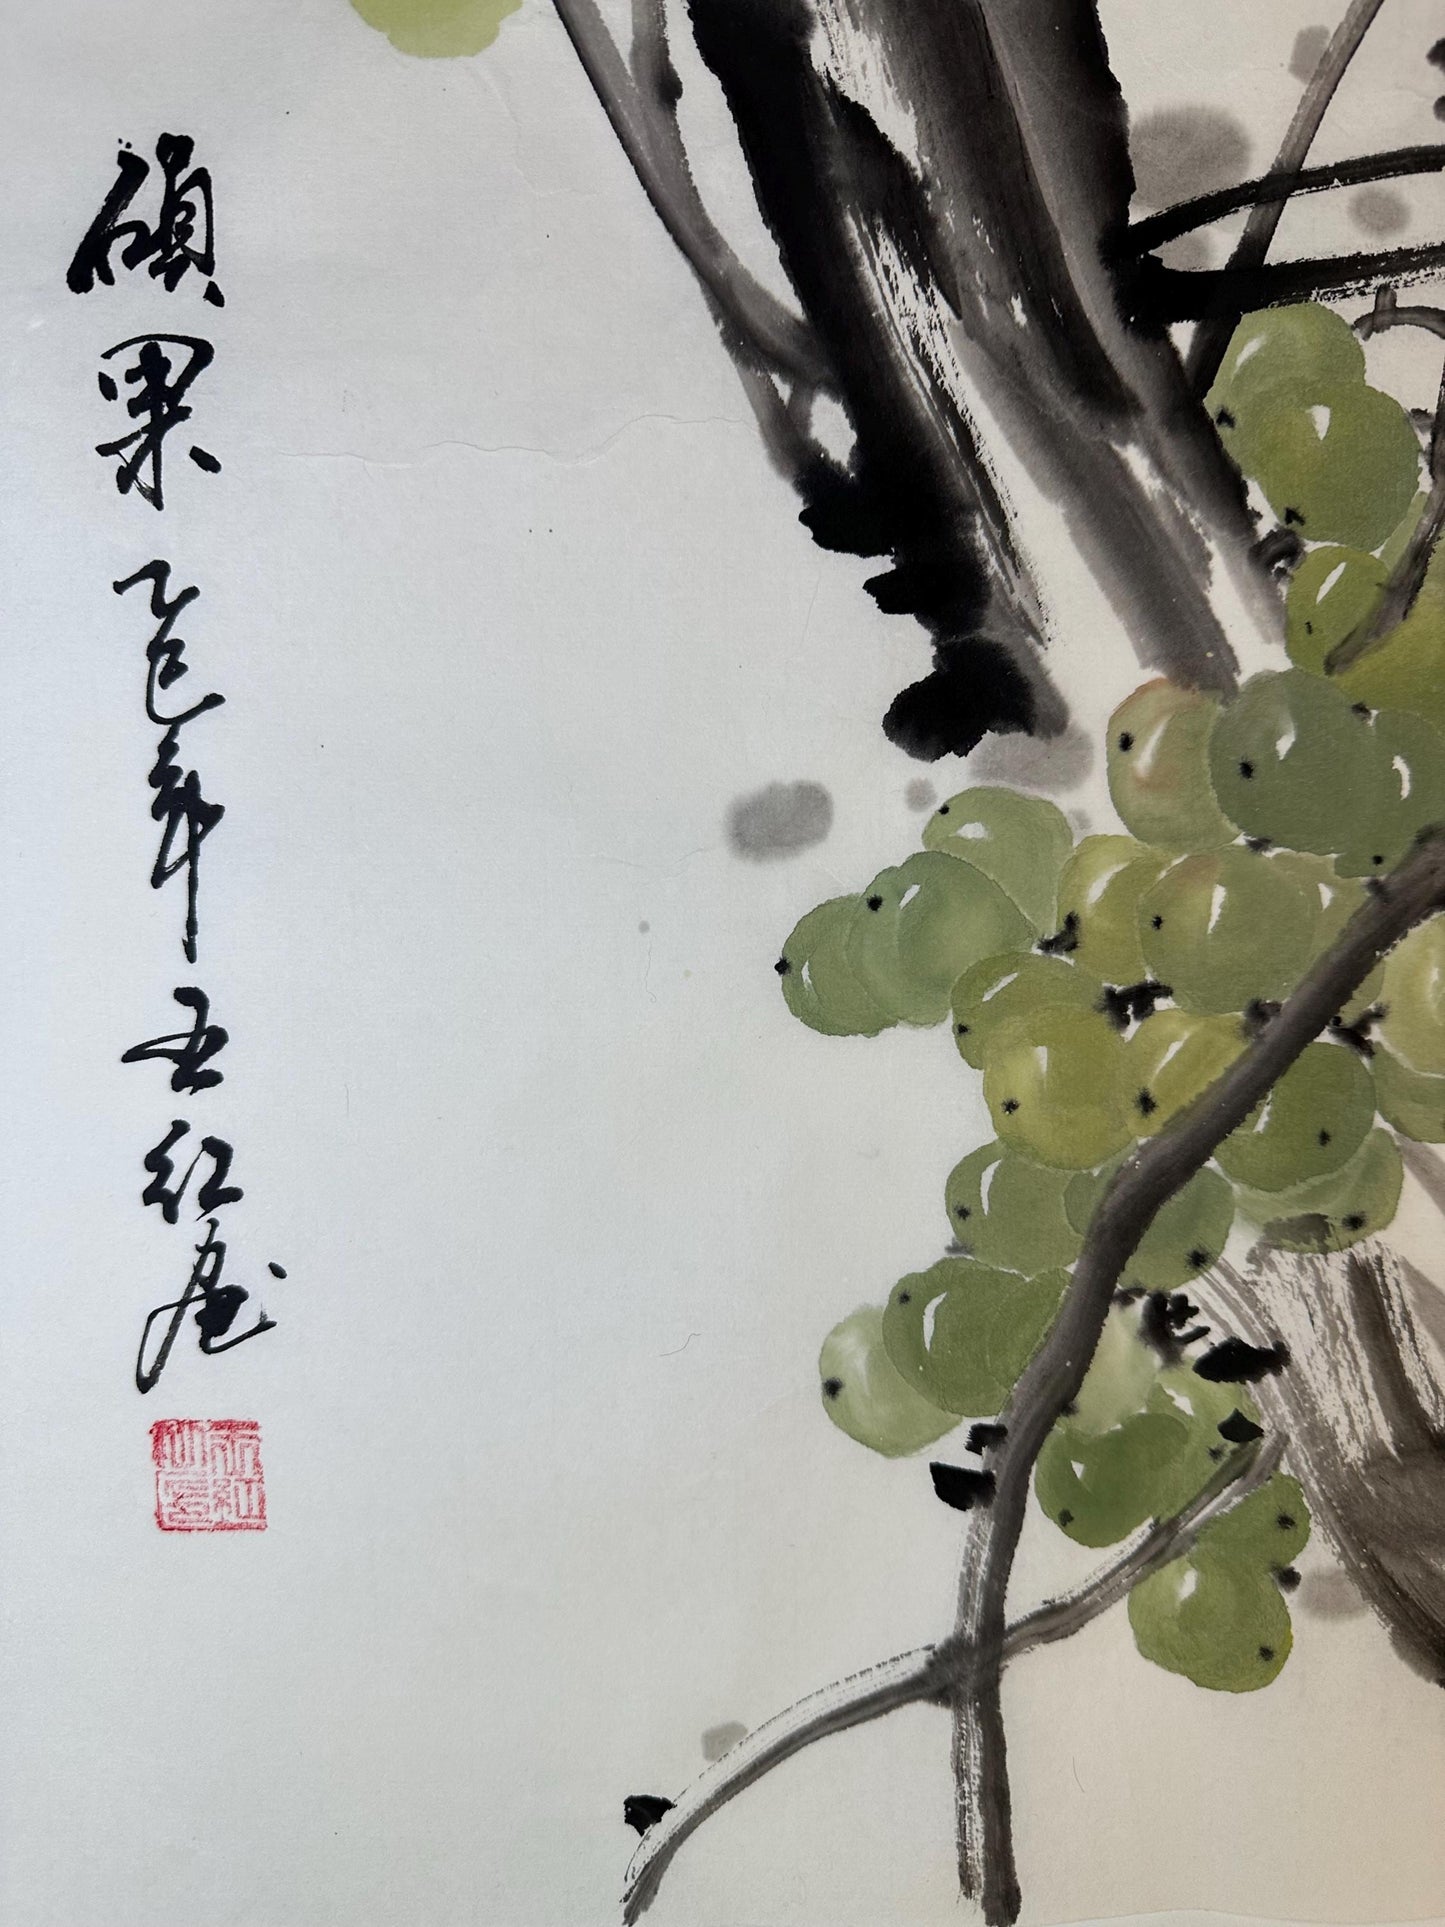 碩果 乙巳年 五红画